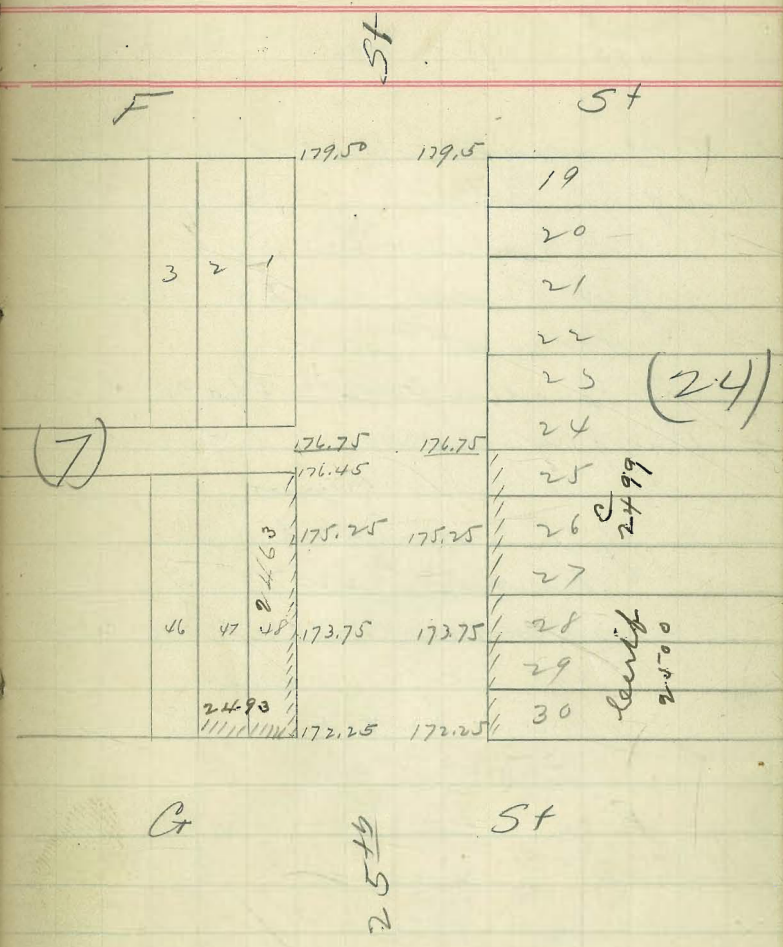 St
F St
179.50 179.5
19
20
3 2 1
21
22
23
(24)
24
(7)
176.75 176.75
176.45
25
C 2499
2463
175.25 175.25
26
27
46 47 48
173.75 173.75
28
29
2500
2493
30
172.25 172.25
G St
25th